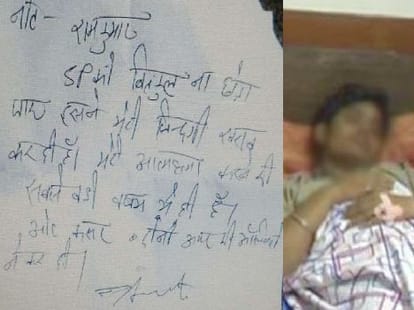 नोट - रामकुमार
SP को बिल्कुल ना छोड़ा
जाए इसने मेरी जिन्दगी खराब
कर दी है। मेरी आत्महत्या करने की
सबसे बड़ी वजह ये ही है।
और कसर
ने कर दी।